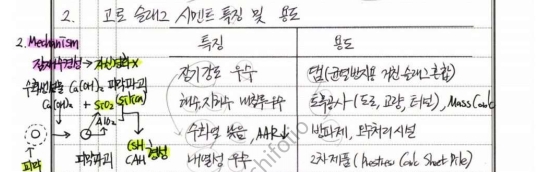 2. 고로 슬래그 시멘트 특징 및 용도
2. Mechanism
특징
용도
잠재수경성 → 자신경화X
장기강도 우수
댐(균열방지용 저열슬래그혼합)
수화반응물 Ca(OH)₂ 피막파괴
Ca(OH)₂ + SiO₂ (Silica)
해수, 지하수 내침투우수
토목공사(도로, 교량, 터널), Mass Con'c
Al₂O₃
수화열 낮음, AAR↓
방파제, 오수처리시설
피막
피막파괴
CSH
CAH
경성
내열성 우수
2차제품 (Prestress Con'c Sheet Pile)